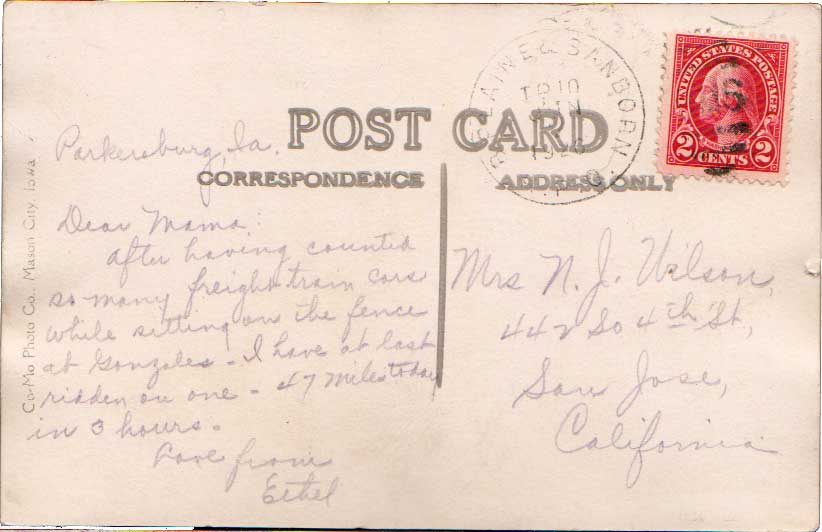 POST CARD
CORRESPONDENCE
ADDRESS ONLY
BELAINE & SANBORN
TR 10
JUN
1926
UNITED STATES POSTAGE
2 CENTS 2
Parkersburg, Ia.
Dear Mama:
After having counted
so many freight train cars
while sitting on the fence
at Gonzales - I have at last
ridden on one - 47 miles today
in 3 hours.
Love from
Ethel
Mrs N. J. Wilson,
442 So 4th St,
San Jose,
California.
Co-Mo Photo Co., Mason City, Iowa